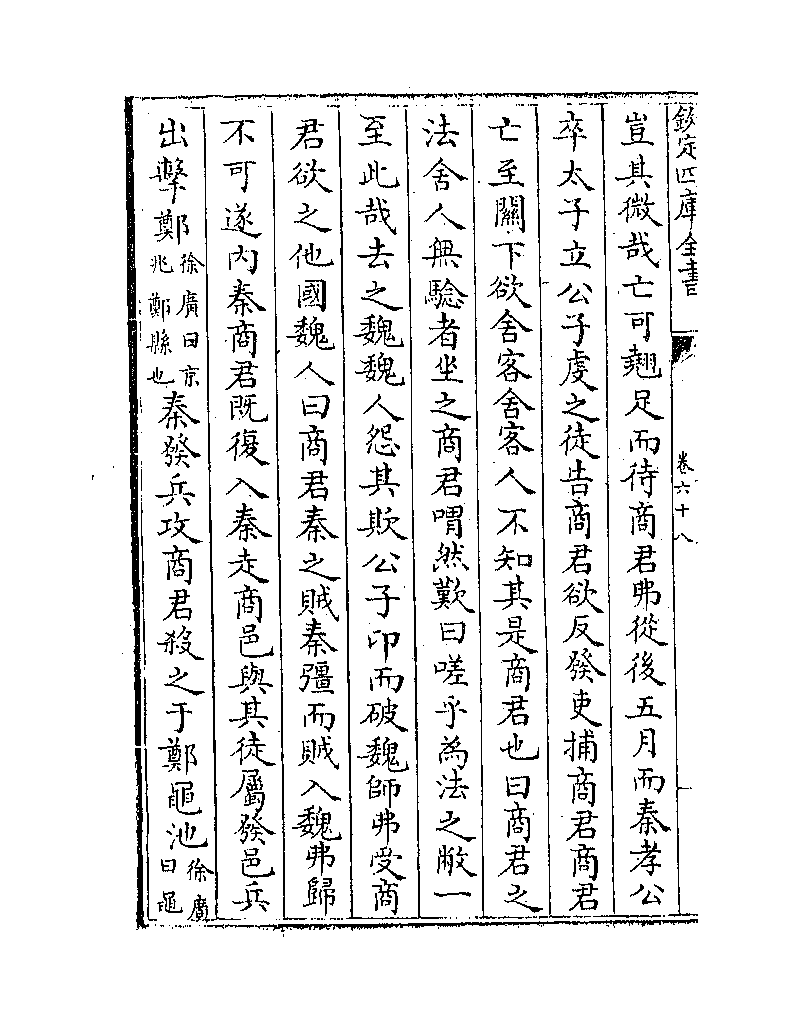 欽定四庫全書
卷六十八
豈其微哉亡可翹足而待商君弗從後五月而秦孝公
卒太子立公子虔之徒告商君欲反發吏捕商君商君
亡至關下欲舍客舍客人不知其是商君也曰商君之
法舍人無驗者坐之商君喟然歎曰嗟乎為法之敝一
至此哉去之魏魏人怨其欺公子卬而破魏師弗受商
君欲之他國魏人曰商君秦之賊秦彊而賊入魏弗歸
不可遂內秦商君既復入秦走商邑與其徒屬發邑兵
出擊鄭徐廣曰京兆鄭縣也秦發兵攻商君殺之于鄭黽池徐廣曰黽